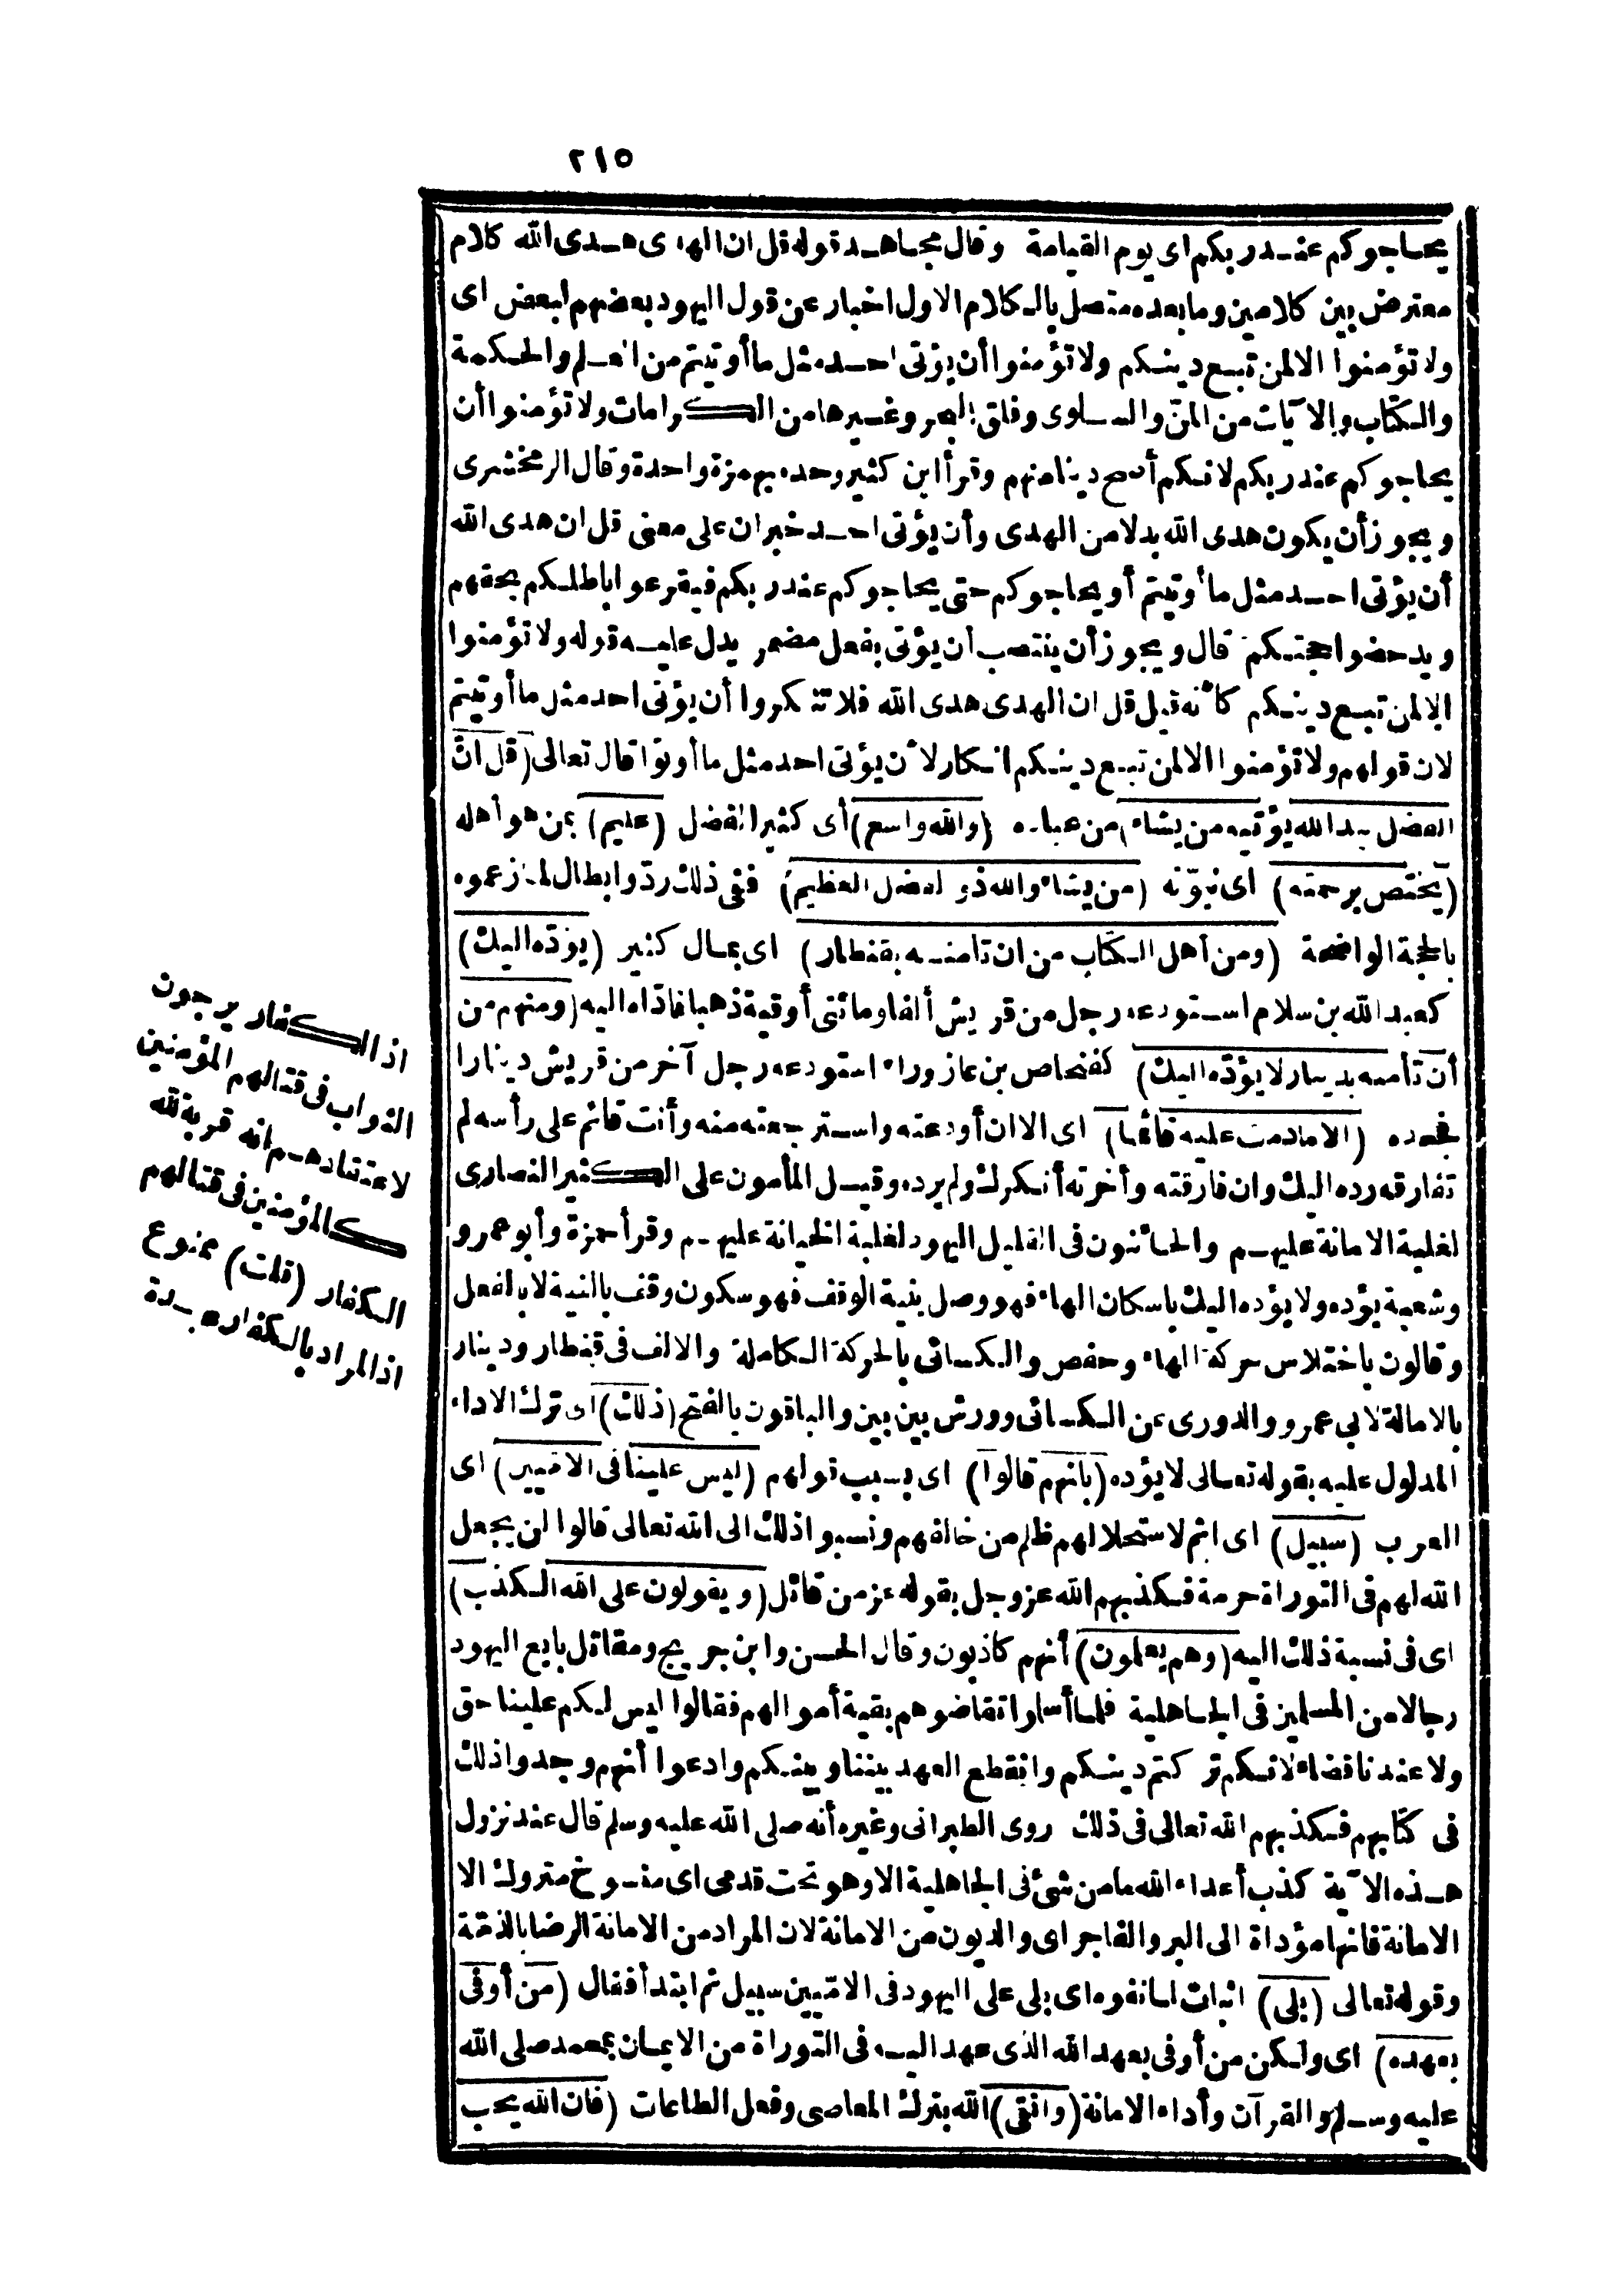 ٢١٥
يحاجوكم عند ربكم اى يوم القيامة وقال مجاهد قوله قل ان الهدى هدى الله كلام
معترض بين كلامين وما بعده متصل بالكلام الاول اخبار عن قول اليهود بعضهم لبعض اى
ولا تؤمنوا الا لمن تبع دينكم ولا تؤمنوا أن يؤتى احد مثل ما أوتيتم من العلم والحكمة
والكتاب والآيات من المن والسلوى وفلق البحر وغيرها من الكرامات ولا تؤمنوا أن
يحاجوكم عند ربكم لانكم أصح دينا منهم وقرأ ابن كثير وحده بهمزة واحدة وقال الزمخشرى
ويجوز أن يكون هدى الله بدلا من الهدى وأن يؤتى احد خبر ان على معنى قل ان هدى الله
أن يؤتى احد مثل ما أوتيتم أو يحاجوكم حتى يحاجوكم عند ربكم فيقرعوا باطلكم بحقهم
ويدحضوا حجتكم قال ويجوز أن ينتصب أن يؤتى بفعل مضمر يدل عليه قوله ولا تؤمنوا
الا لمن تبع دينكم كأنه قيل قل ان الهدى هدى الله فلا تنكروا أن يؤتى احد مثل ما أوتيتم
لان قولهم ولا تؤمنوا الا لمن تبع دينكم انكار لأن يؤتى احد مثل ما أوتوا قال تعالى (قل ان
الفضل بيد الله يؤتيه من يشاء) من عباده (والله واسع) أى كثير الفضل (عليم) بمن هو أهله
(يختص برحمته) اى نبوّته (من يشاء والله ذو الفضل العظيم) ففى ذلك ردّ وابطال لما زعموه
بالحجة الواضحة (ومن أهل الكتاب من ان تأمنه بقنطار) اى بمال كثير (يؤدّه اليك)
كعبد الله بن سلام استودعه رجل من قريش ألفا ومائتى أوقية ذهبا فادّاه اليه (ومنهم من
أن تأمنه بدينار لا يؤدّه اليك) كفنحاص بن عازوراء استودعه رجل آخر من قريش دينارا
فجحده (الا مادمت عليه قائما) اى الا ان أودعته واسترجعته منه وأنت قائم على رأسه لم
تفارقه رده اليك وان فارقته وأخرته أنكرك ولم يرده وقيل المأمون على الكثير النصارى
لغلبة الامانة عليهم والخائنون فى القليل اليهود لغلبة الخيانة عليهم وقرأ حمزة وأبو عمرو
وشعبة يؤده ولا يؤده اليك باسكان الهاء فهو وصل بنية الوقف فهو سكون وقف بالنية لا بالفعل
وقالون باختلاس حركة الهاء وحفص والكسائى بالحركة الكاملة والالف فى قنطار ودينار
بالامالة لابى عمرو والدورى عن الكسائى وورش بين بين والباقون بالفتح (ذلك) اى ترك الاداء
المدلول عليه بقوله تعالى لا يؤده (بانهم قالوا) اى بسبب قولهم (ليس علينا فى الاميين) اى
العرب (سبيل) اى اثم لاستحلالهم ظلم من خالفهم ونسبوا ذلك الى الله تعالى قالوا لن يجعل
الله لهم فى التوراة حرمة فكذبهم الله عز وجل بقوله عز من قائل (ويقولون على الله الكذب)
اى فى نسبة ذلك اليه (وهم يعلمون) أنهم كاذبون وقال الحسن وابن جريج ومقاتل بايع اليهود
رجالا من المسلمين فى الجاهلية فلما أسلموا تقاضوهم بقية أموالهم فقالوا ليس لكم علينا حق
ولا عندنا قضاء لانكم تركتم دينكم وانقطع العهد بيننا وبينكم وادعوا أنهم وجدوا ذلك
فى كتابهم فكذبهم الله تعالى فى ذلك روى الطبرانى وغيره أنه صلى الله عليه وسلم قال عند نزول
هذه الآية كذب أعداء الله ما من شئ فى الجاهلية الا وهو تحت قدمى اى منسوخ متروك الا
الامانة فانها مؤداة الى البر والفاجر اى والديون من الامانة لان المراد من الامانة الرضا بالذمّة
وقوله تعالى (بلى) اثبات لما نفوه اى بلى على اليهود فى الامّيين سبيل ثم ابتدأ فقال (من أوفى
بعهده) اى ولكن من أوفى بعهد الله الذى عهد اليه فى التوراة من الايمان بمحمد صلى الله
عليه وسلم والقرآن وأداء الامانة (واتقى) الله بترك المعاصى وفعل الطاعات (فان الله يحب
اذ الكفار يرجون
الثواب فى قتالهم المؤمنين
لاعتقادهم انه قربة لله
كالمؤمنين فى قتالهم
الكفار (قلت) ممنوع
اذ المراد بالكفار عبدة